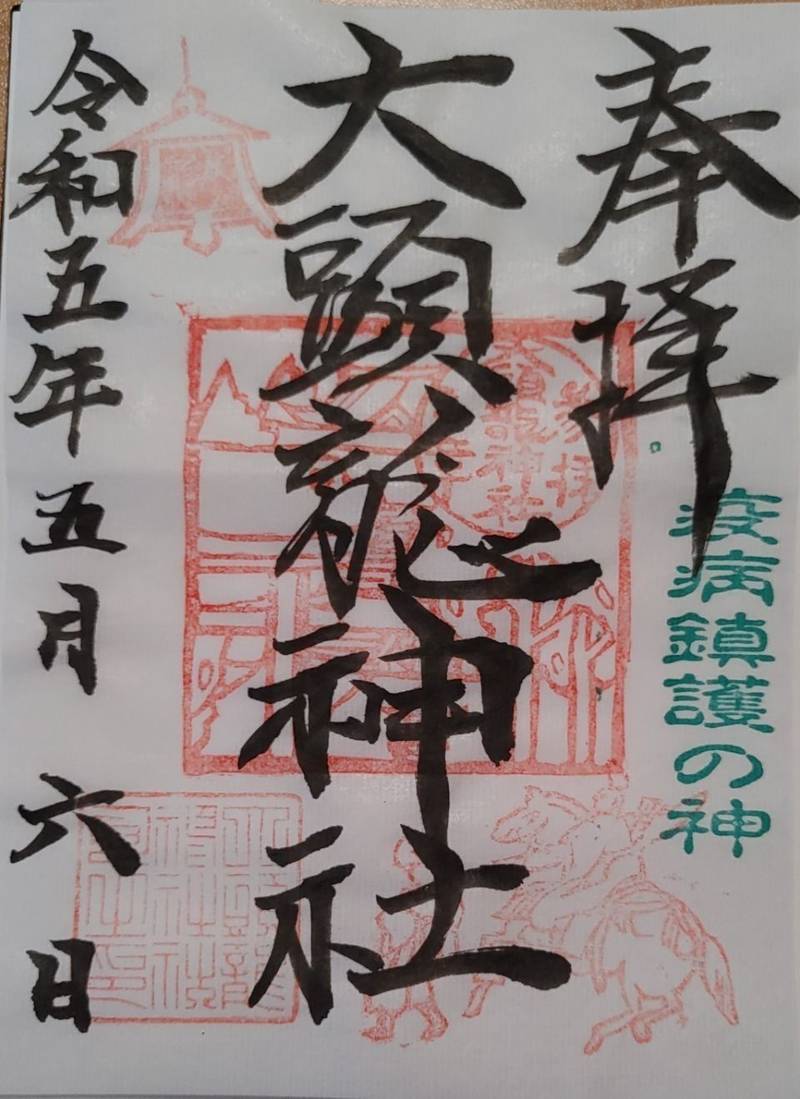 奉拝
疫病鎮護の神
大頭龍神社
令和五年五月六日